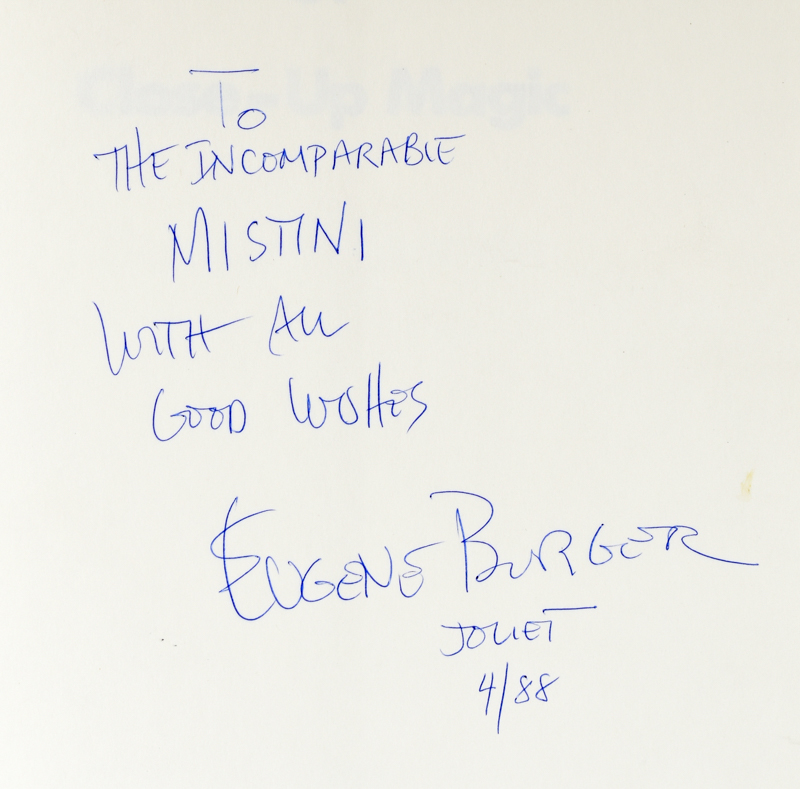 Close-Up Magic
To
THE INCOMPARABLE
MISTINI
WITH ALL
GOOD WISHES
EUGENE BURGER
JOLIET
4/88